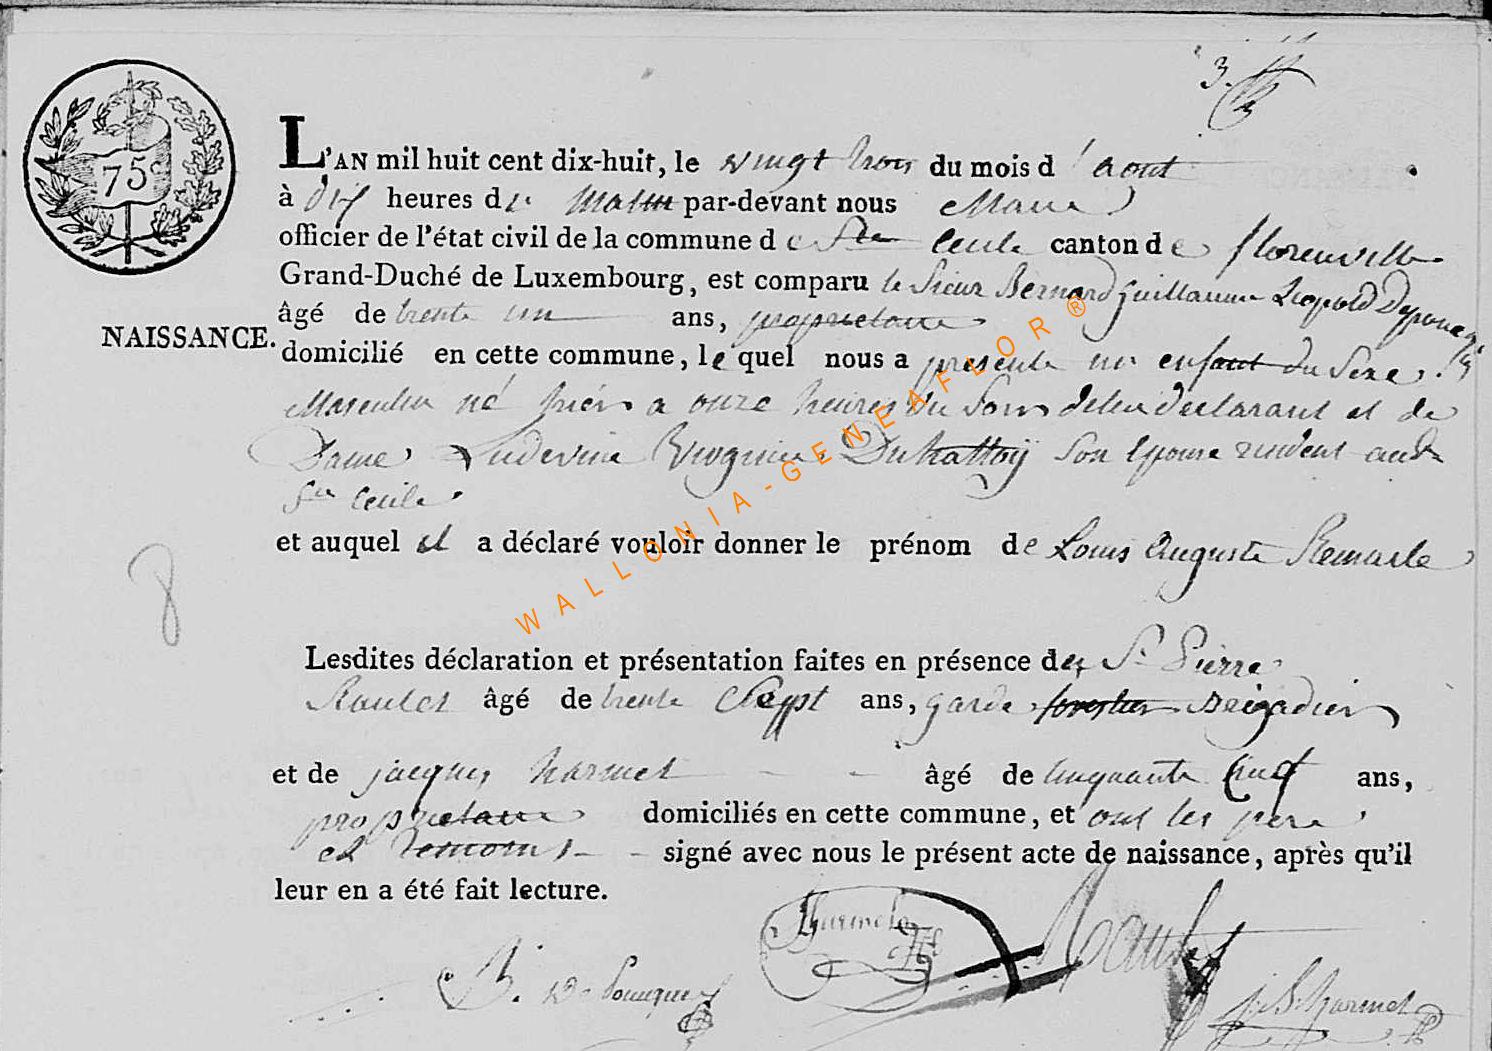 3.
75c
L'AN mil huit cent dix-huit, le vingt trois du mois d'aout
à dix heures du Matin par-devant nous Maire
officier de l'état civil de la commune de Ste Cecile canton de florenville
Grand-Duché de Luxembourg, est comparu le Sieur Bernard Guillaume Leopold
NAISSANCE.
âgé de trente un ans, proprietaire
domicilié en cette commune, le quel nous a presenté un enfant du Sexe
Masculin né hier a onze heures du Soir de lui declarant et de
Dame Ludevine Virginie Duhattoÿ son Epouse resident aud
Ste Cecile
et auquel il a déclaré vouloir donner le prénom de Louis Auguste
Lesdites déclaration et présentation faites en présence de Sr Pierre
Raulet âgé de trente Sept ans, garde forestier Brigadier
et de jacques harmel âgé de Cinquante Cinq ans,
proprietaire domiciliés en cette commune, et ont les pere
et temoins signé avec nous le présent acte de naissance, après qu'il
leur en a été fait lecture.
Harmel
Raulet
B. De Pouuques
j. S. harmel
WALLONIA-GENEAFLOR®